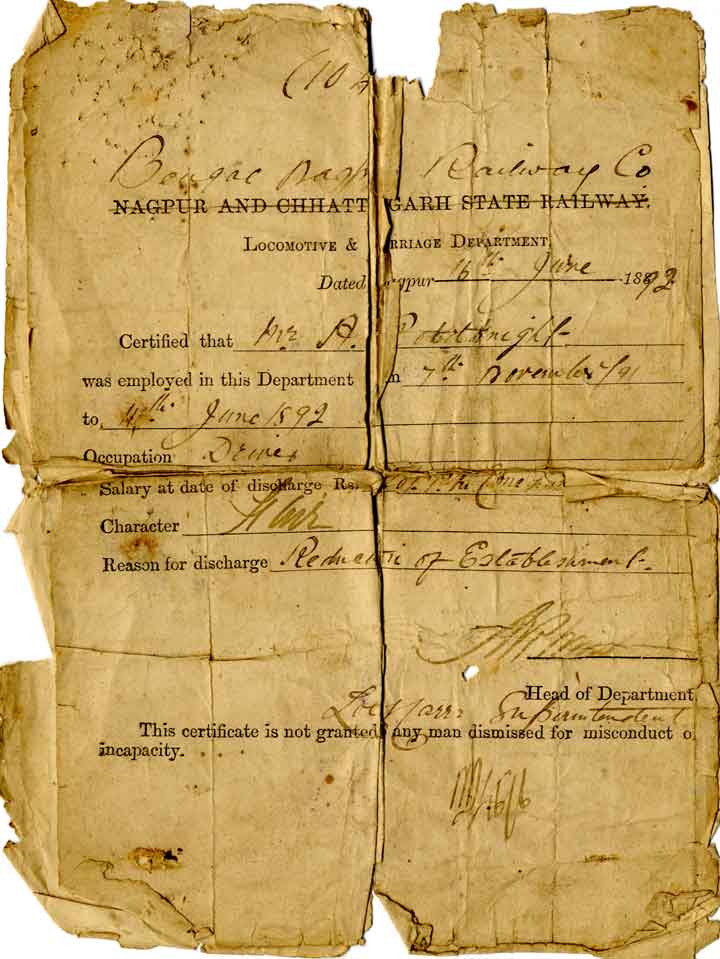 (104
Bengal Nagp Railway Co
NAGPUR AND CHHATT GARH STATE RAILWAY.
LOCOMOTIVE & RRIAGE DEPARTMENT.
Dated gpur 16th June 1892
Certified that Mr A.
was employed in this Department n 7th November/91
to 4th June 1892
Occupation Driver
Salary at date of discharge Rs.
Character
Reason for discharge Reducti of Establishment.
Head of Department.
Loco Carr Superintendent
This certificate is not granted any man dismissed for misconduct o
incapacity.